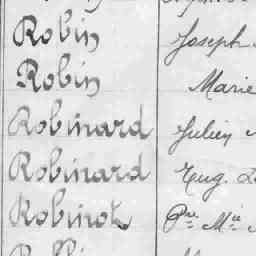 Robin Joseph
Robin Marie
Robinard Julien
Robinard Eug.
Robinot Pre Mie